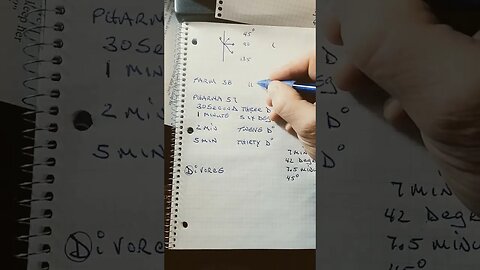 45°
90
135
MARCH 38
PHARMA 57
30 SECOND THREE D°
1 MINUTE SIX DEG
2 MIN TWENG D°
5 MIN THIRTY D°
7 MIN
42 DEGR
7.5 MINU
45°
DIVORCE
PHARMA
30 SECON
1 MIN
2 MIN
5 MIN
DIVORC
7 MIN
42 DEGR
7.5 MIN
45°